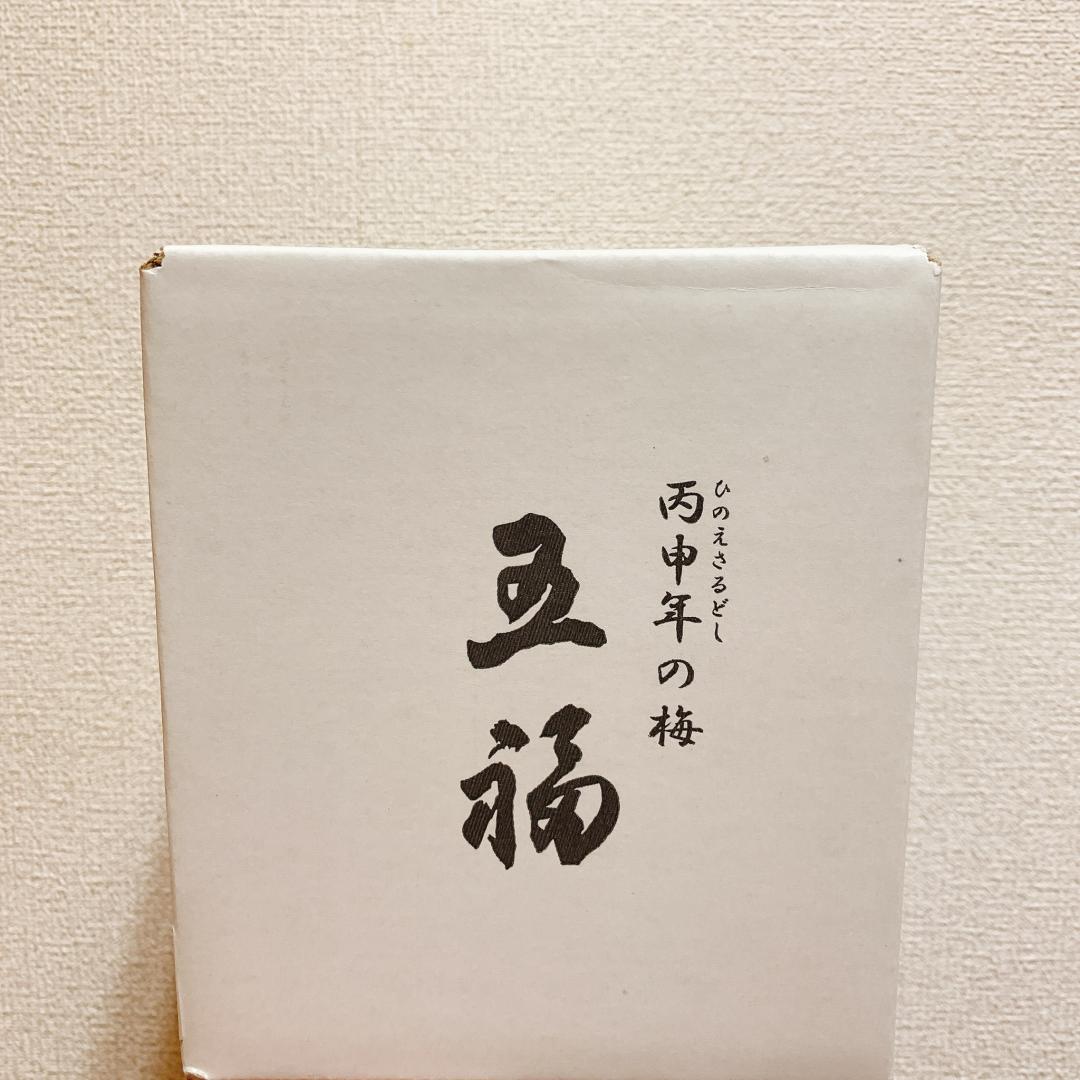 ひのえさるどし
丙申年の梅
五福